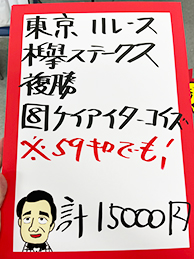 東京11レース
欅ステークス
複勝
⑧ケイアイターコイズ
※59キロでも!
計15000円